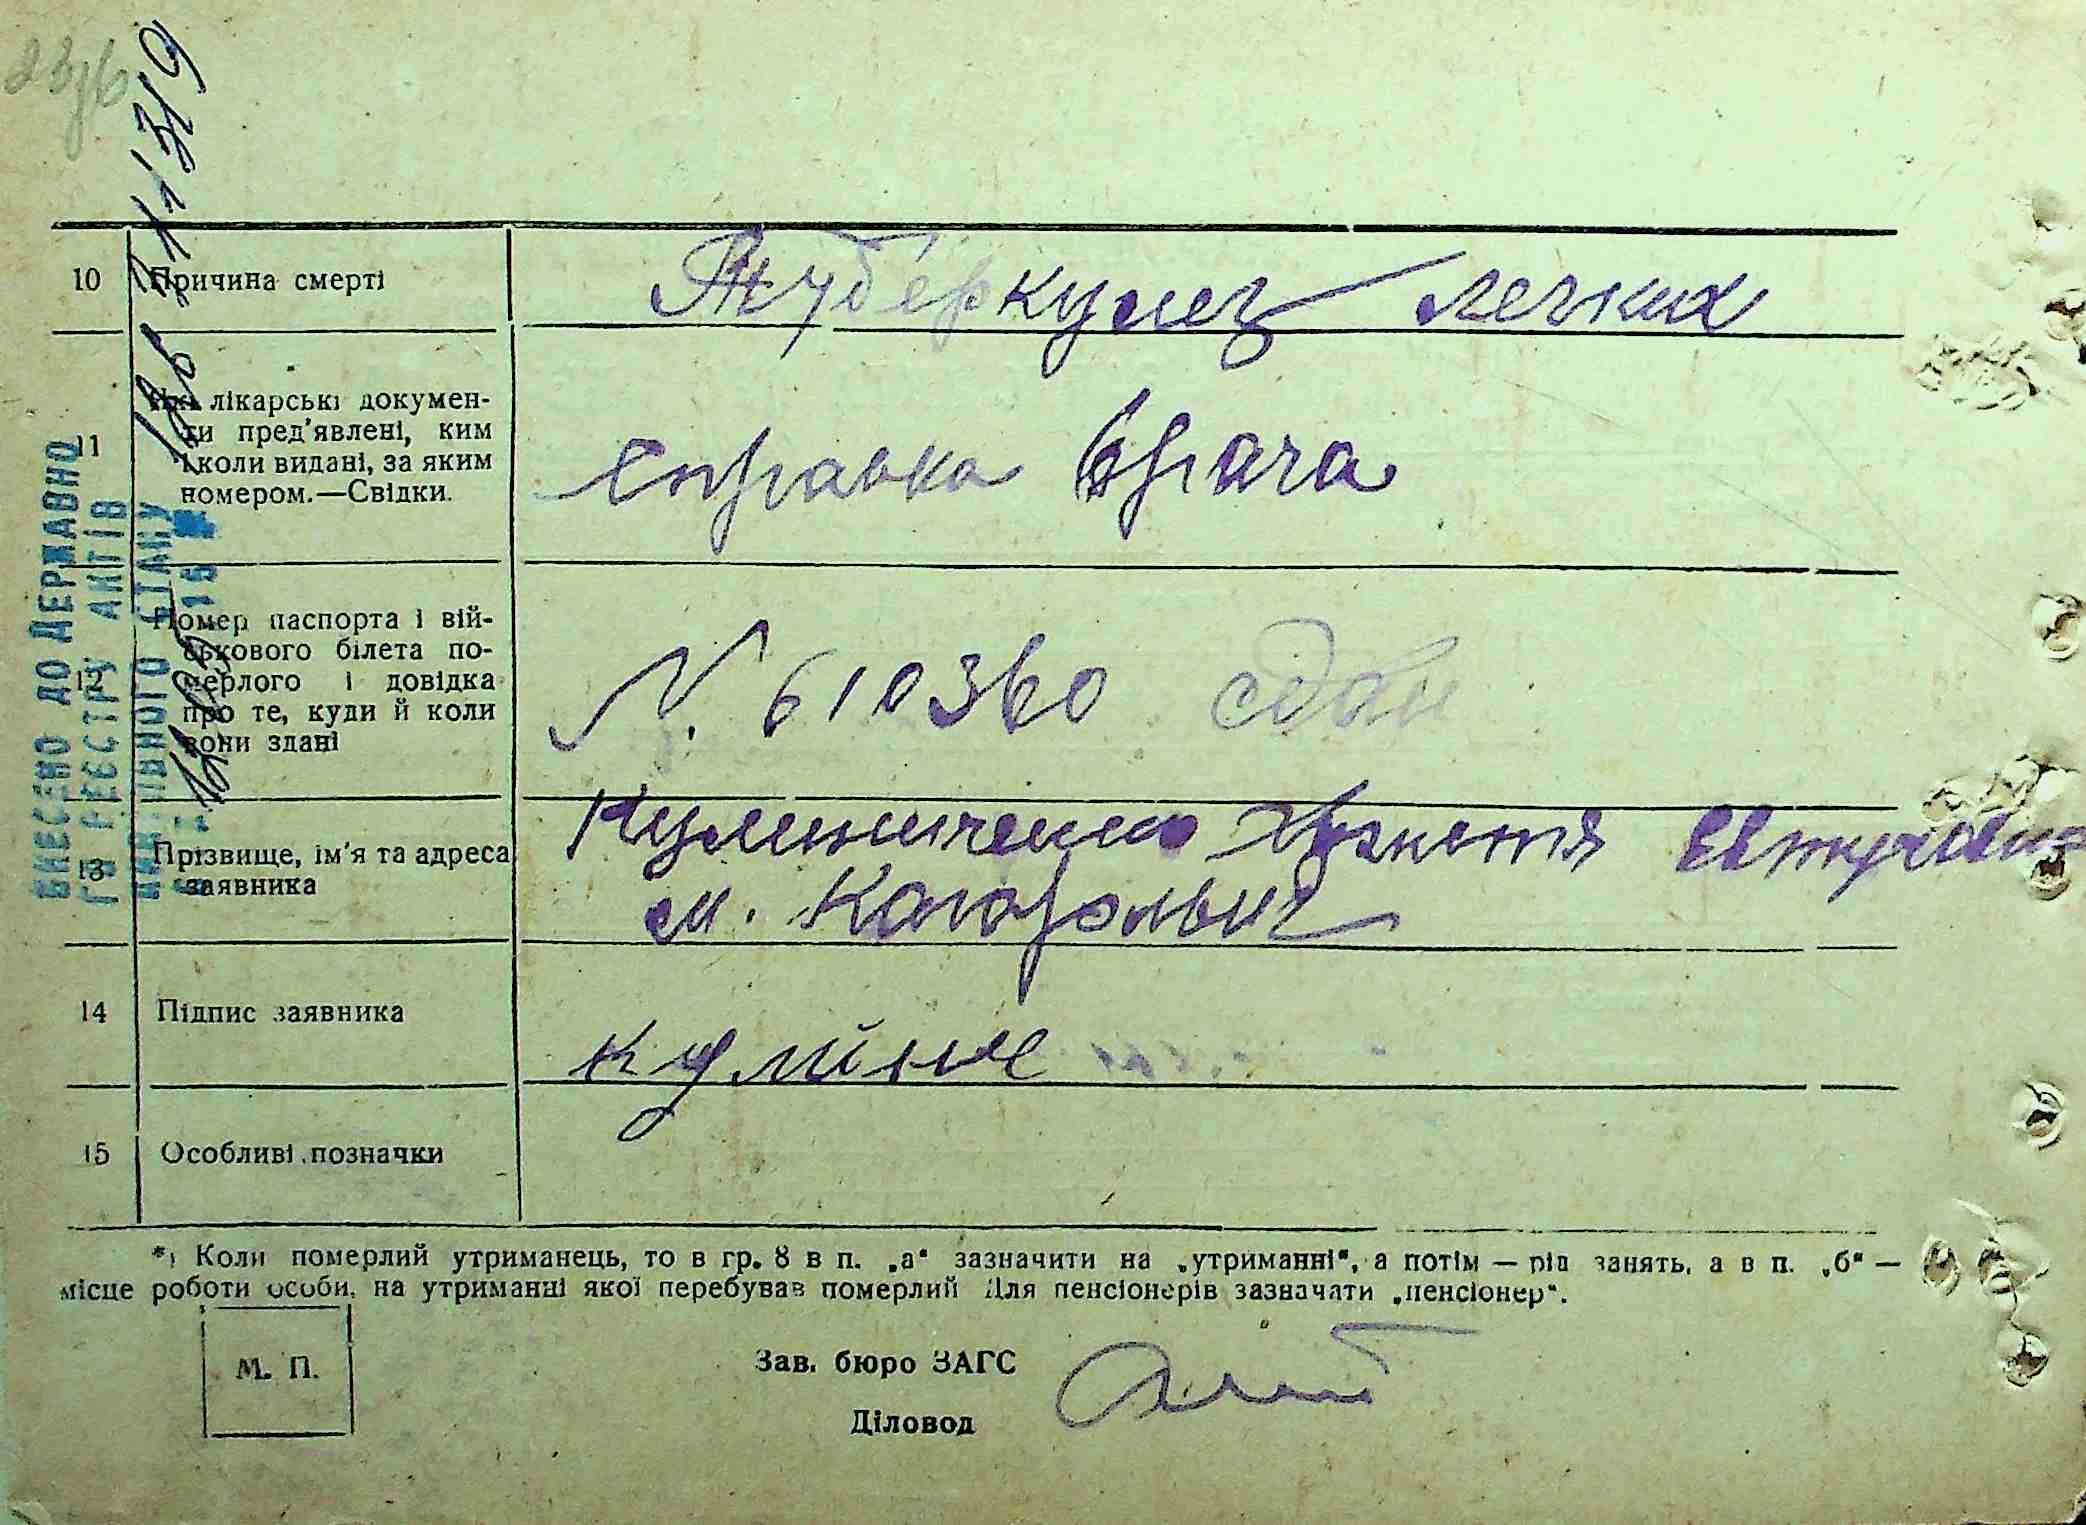 10 Причина смерті Туберкулез легких
11 Які лікарські докумен-
ти пред'явлені, ким
і коли видані, за яким
номером.—Свідки.
справка врача
12 Номер паспорта і вій-
ськового білета по-
мерлого і довідка
про те, куди й коли
вони здані
N. 610360 сдан
13 Прізвище, ім'я та адреса
заявника
Кулиниченко
м.
14 Підпис заявника
15 Особливі позначки
*) Коли померлий утриманець, то в гр. 8 в п. „а“ зазначити на „утриманні“, а потім — рід занять, а в п. „б“ —
місце роботи особи, на утриманні якої перебував померлий Для пенсіонерів зазначати „пенсіонер“.
М. П.
Зав. бюро ЗАГС
Діловод
ВНЕСЕНО ДО ДЕРЖАВНО
ГО РЕЄСТРУ АКТІВ
СТАНУ